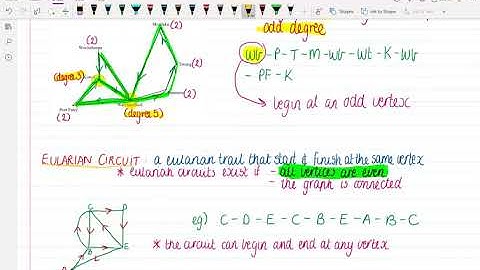 odd degree
(2)
(2)
Wb - P - T - M - Wb - Wt - K - Wb
- PF - K
(degree 3)
(2)
(2)
(degree 5)
begin at an odd vertex
EULARIAN CIRCUIT - a eularian trail that start & finish at the same vertex
* eularian circuits exist if - all vertices are even
- the graph is connected
C D
eg) C - D - E - C - B - E - A - B - C
B E
* the circuit can begin and end at any vertex
A